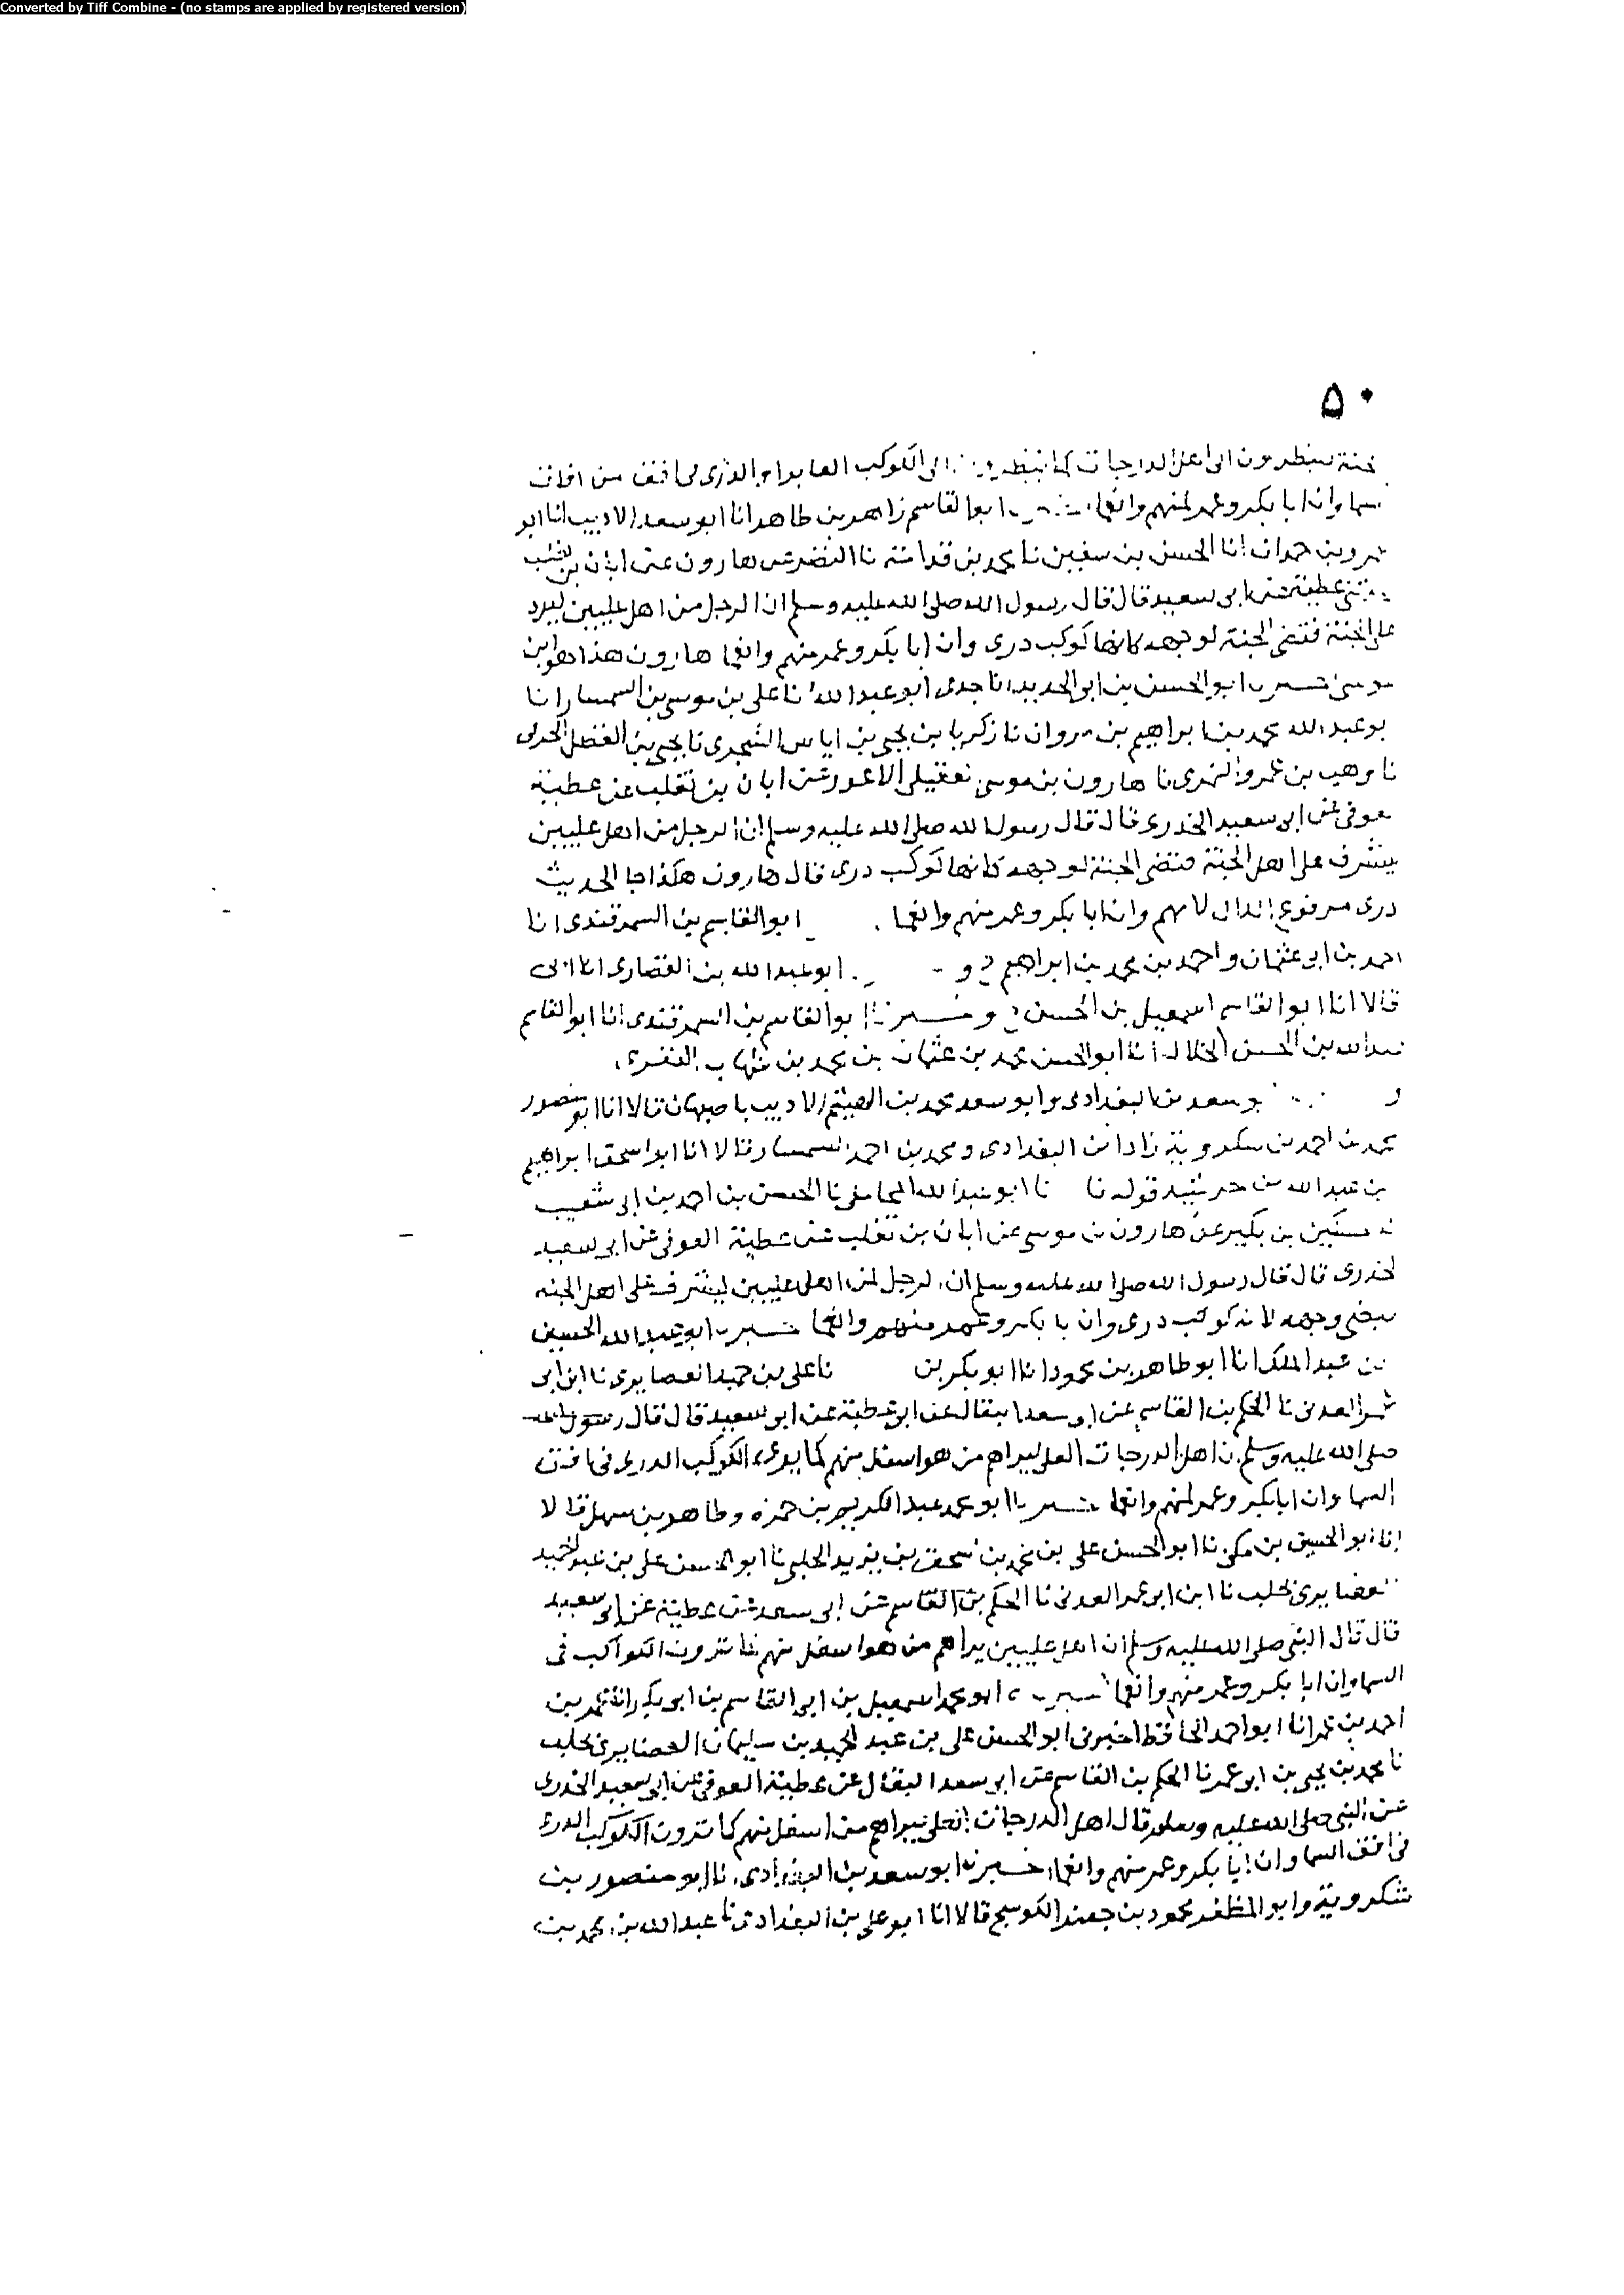 Converted by Tiff Combine - (no stamps are applied by registered version)
٥٠
ينظرون الى اعلى الدرجات كما ينظرون الى الكوكب الغابر او الدرى فى افق من افاق
سما وان ابا بكر وعمر لمنهم وانعما ابو القاسم زاهر بن طاهر انا ابو سعد الاديب انا ابو
عمرو بن حمدان انا الحسن بن سفين نا محمد بن قدامة نا النضر عن هارون عن ابان بن تغلب
عطية عن ابى سعيد قال قال رسول الله صلى الله عليه وسلم ان الرجل من اهل عليين ليرد
على الجنة فتضى الجنة لوجهه كانها كوكب درى وان ابا بكر وعمر منهم وانعما هارون هذا هو ابن
موسى ابو الحسن بن ابى الحديد انا جدى ابو عبد الله نا على بن موسى بن السمسار انا
بو عبد الله محمد بن ابراهيم بن مروان نا زكريا بن يحيى بن اياس السجزى نا يحيى بن الفضل الخرقى
نا وهيب بن عمرو النمرى نا هارون بن موسى لاعور عن ابان بن تغلب عن عطية
عوفى عن ابى سعيد الخدرى قال قال رسول الله صلى الله عليه وسلم ان الرجل من اهل عليين
يشرف على اهل الجنة فتضى الجنة لوجهه كانها كوكب درى قال هارون هكذا جا الحديث
درى مرفوع الدال لا مهم وان ابا بكر وعمر منهم وانعما ابو القاسم بن السمرقندى انا
احمد بن ابى عثمان واحمد بن محمد بن ابراهيم ح و ابو عبد الله بن القصارى انا ابى
قالا انا ابو القاسم اسمعيل بن الحسن ح و ابو القاسم بن السمرقندى انا ابو القاسم
عبد الله بن الحسن الخلال انا ابو الحسن محمد بن عثمان بن محمد بن شهاب النفرى
و بو سعد بن البغدادى وابو سعد محمد بن الهيثم الاديب باصبهان قالا انا ابو منصور
محمد بن احمد بن شكرويه زاد ابن البغدادى ومحمد بن احمد السمسار قالا انا ابو اسحق ابراهيم
بن عبد الله بن خرشيد قوله نا نا ابو عبد الله المحاملى نا الحسن بن احمد بن ابى شعيب
نا مسكين بن بكير عن هارون بن موسى عن ابان بن تغلب عن عطية العوفى عن ابى سعيد
لخدرى قال قال رسول الله صلى الله عليه وسلم ان الرجل من اهل عليين ليشرف على اهل الجنه
بيضى وجهه لانه كوكب درى وان با بكر وعمر منهم وانعما ابو عبد الله الحسين
بن عبد الملك انا ابو طاهر بن محمود انا ابو بكر بن نا على بن حميد الغضايرى نا ابن ابى
عمر العدنى نا الحكم بن القاسم عن ابى سعد البقال عن ابى عطية عن ابى سعيد قال قال رسول الله
صلى الله عليه وسلم ان اهل الدرجات العلى ليراهم من هو اسفل منهم كما يرى الكوكب الدرى فى افق
السما وان ابا بكر وعمر لمنهم وانعما ابو محمد عبد الكريم بن حمزه وطاهر بن سهل قالا
انا ابو الحسين بن مكى نا ابو الحسن على بن محمد بن اسحق بن يزيد الحلبى نا ابو الحسن على بن عبد الحميد
لغضايرى بحلب نا ابن ابى عمر العدنى نا الحكم بن القاسم عن ابى سعد عن عطية عن ابى سعيد
قال قال النبى صلى الله عليه وسلم ان اهل عليين يراهم من هو اسفل منهم كما ترون الكواكب فى
السما وان ابا بكر وعمر منهم وانعما ابو محمد اسمعيل بن ابى القاسم بن ابى بكر انا عمر بن
احمد بن عمر انا ابو احمد الحافظ اخبرنى ابو الحسن على بن عبد الحميد بن سليمان الغضايرى بحلب
نا محمد بن يحيى بن ابى عمر نا الحكم بن القاسم عن ابى سعد البقال عن عطية العوفى عن ابى سعيد الخدرى
عن النبى صلى الله عليه وسلم قال اهل الدرجات العلى ليراهم من اسفل منهم كما ترون الكوكب الدرى
فى افق السما وان ابا بكر وعمر منهم وانعما اخبرنا ابو سعد بن البغدادى نا ابو منصور بن
شكرويه وابو المظفر محمود بن جعفر الكوسج قالا انا ابو على بن البغدادى نا عبد الله بن محمد بن